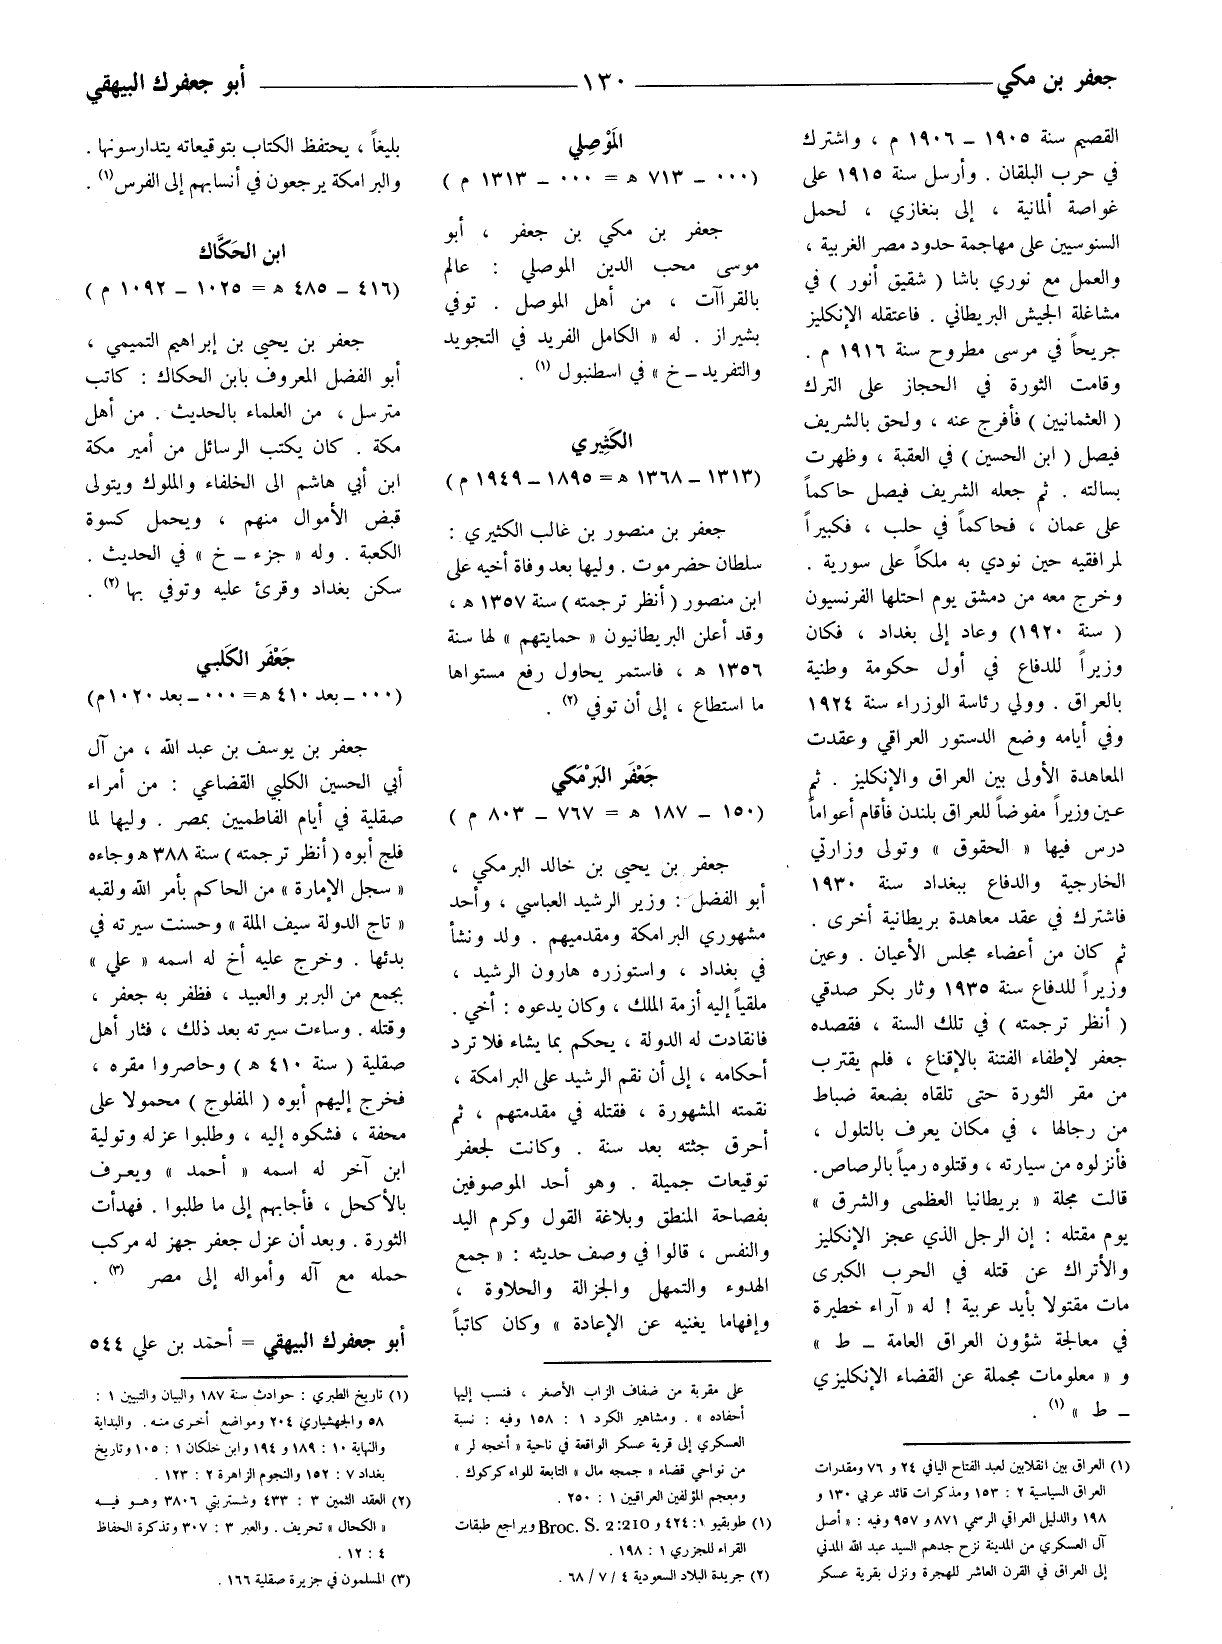 جعفر بن مكي ــــــ ١٣٠ ــــــ أبو جعفرك البيهقي
القصيم سنة ١٩٠٥ ــ ١٩٠٦ م ، واشترك
في حرب البلقان . وأرسل سنة ١٩١٥ على
غواصة ألمانية ، إلى بنغازي ، لحمل
السنوسيين على مهاجمة حدود مصر الغربية ،
والعمل مع نوري باشا ( شقيق أنور ) في
مشاغلة الجيش البريطاني . فاعتقله الإنكليز
جريحاً في مرسى مطروح سنة ١٩١٦ م .
وقامت الثورة في الحجاز على الترك
( العثمانيين ) فأفرج عنه ، ولحق بالشريف
فيصل ( ابن الحسين ) في العقبة ، وظهرت
بسالته . ثم جعله الشريف فيصل حاكماً
على عمان ، فحاكماً في حلب ، فكبيراً
لمرافقيه حين نودي به ملكاً على سورية .
وخرج معه من دمشق يوم احتلها الفرنسيون
( سنة ١٩٢٠) وعاد إلى بغداد ، فكان
وزيراً للدفاع في أول حكومة وطنية
بالعراق . وولي رئاسة الوزراء سنة ١٩٢٤
وفي أيامه وضع الدستور العراقي وعقدت
المعاهدة الأولى بين العراق والإنكليز . ثم
عين وزيراً مفوضاً للعراق بلندن فأقام أعواماً
درس فيها « الحقوق » وتولى وزارتي
الخارجية والدفاع ببغداد سنة ١٩٣٠
فاشترك في عقد معاهدة بريطانية أخرى .
ثم كان من أعضاء مجلس الأعيان . وعين
وزيراً للدفاع سنة ١٩٣٥ وثار بكر صدقي
( أنظر ترجمته ) في تلك السنة ، فقصده
جعفر لإطفاء الفتنة بالإقناع ، فلم يقترب
من مقر الثورة حتى تلقاه بضعة ضباط
من رجالها ، في مكان يعرف بالتلول ،
فأنزلوه من سيارته ، وقتلوه رمياً بالرصاص.
قالت مجلة « بريطانيا العظمى والشرق »
يوم مقتله : إن الرجل الذي عجز الإنكليز
والأتراك عن قتله في الحرب الكبرى
مات مقتولا بأيد عربية ! له « آراء خطيرة
في معالجة شؤون العراق العامة ــ ط »
و « معلومات مجملة عن القضاء الإنكليزي
ــ ط » (١) .
(١) العراق بين انقلابين لعبد الفتاح اليافي ٢٤ و ٧٦ ومقدرات
العراق السياسية ٢ : ١٥٣ ومذكرات قائد عربي ١٣٠ و
١٩٨ والدليل العراقي الرسمي ٨٧١ و ٩٥٧ وفيه : « أصل
آل العسكري من المدينة نزح جدهم السيد عبد الله المدني
إلى العراق في القرن العاشر للهجرة ونزل بقرية عسكر
المَوْصِلي
(٠٠٠ ــ ٧١٣ هـ = ٠٠٠ ــ ١٣١٣ م )
جعفر بن مكي بن جعفر ، أبو
موسى محب الدين الموصلي : عالم
بالقراآت ، من أهل الموصل . توفي
بشيراز . له « الكامل الفريد في التجويد
والتفريد ــ خ » في اسطنبول (١) .
الكَثِيري
(١٣١٣ ــ ١٣٦٨ هـ = ١٨٩٥ ــ ١٩٤٩ م )
جعفر بن منصور بن غالب الكثيري :
سلطان حضرموت . وليها بعد وفاة أخيه على
ابن منصور ( أنظر ترجمته ) سنة ١٣٥٧ هـ ،
وقد أعلن البريطانيون « حمايتهم » لها سنة
١٣٥٦ هـ ، فاستمر يحاول رفع مستواها
ما استطاع ، إلى أن توفي (٢) .
جَعْفَر البَرْمَكي
(١٥٠ ــ ١٨٧ هـ = ٧٦٧ ــ ٨٠٣ م )
جعفر بن يحيى بن خالد البرمكي ،
أبو الفضل : وزير الرشيد العباسي ، وأحد
مشهوري البرامكة ومقدميهم . ولد ونشأ
في بغداد ، واستوزره هارون الرشيد ،
ملقياً إليه أزمة الملك ، وكان يدعوه : أخي .
فانقادت له الدولة ، يحكم بما يشاء فلا ترد
أحكامه ، إلى أن نقم الرشيد على البرامكة ،
نقمته المشهورة ، فقتله في مقدمتهم ، ثم
أحرق جثته بعد سنة . وكانت لجعفر
توقيعات جميلة . وهو أحد الموصوفين
بفصاحة المنطق وبلاغة القول وكرم اليد
والنفس ، قالوا في وصف حديثه : « جمع
الهدوء والتمهل والجزالة والحلاوة ،
وإفهاما يغنيه عن الإعادة » وكان كاتباً
على مقربة من ضفاف الزاب الأصغر ، فنسب إليها
أحفاده » . ومشاهير الكرد ١ : ١٥٨ وفيه : نسبة
العسكري إلى قرية عسكر الواقعة في ناحية « أخجه لر »
من نواحي قضاء « جمجه مال » التابعة للواء كركوك .
ومعجم المؤلفين العراقيين ١ : ٢٥٠ .
(١) طوبقبو ١ : ٤٢٤ و Broc. S. 2:210 ويراجع طبقات
القراء للجزري ١ : ١٩٨ .
(٢) جريدة البلاد السعودية ٤ / ٧ / ٦٨ .
بليغاً ، يحتفظ الكتاب بتوقيعاته يتدارسونها .
والبرامكة يرجعون في أنسابهم إلى الفرس(١) .
ابن الحَكَّاك
(٤١٦ ــ ٤٨٥ هـ = ١٠٢٥ ــ ١٠٩٢ م )
جعفر بن يحيى بن إبراهيم التميمي ،
أبو الفضل المعروف بابن الحكاك : كاتب
مترسل ، من العلماء بالحديث . من أهل
مكة . كان يكتب الرسائل من أمير مكة
ابن أبي هاشم الى الخلفاء والملوك ويتولى
قبض الأموال منهم ، ويحمل كسوة
الكعبة . وله « جزء ــ خ » في الحديث .
سكن بغداد وقرئ عليه وتوفي بها (٢) .
جَعْفَر الكَلبـي
(٠٠٠ ــ بعد ٤١٠ هـ = ٠٠٠ ــ بعد ١٠٢٠ م)
جعفر بن يوسف بن عبد الله ، من آل
أبي الحسين الكلبي القضاعي : من أمراء
صقلية في أيام الفاطميين بمصر . وليها لما
فلج أبوه ( أنظر ترجمته ) سنة ٣٨٨ هـ وجاءه
« سجل الإمارة » من الحاكم بأمر الله ولقبه
« تاج الدولة سيف الملة » وحسنت سيرته في
بدئها . وخرج عليه أخ له اسمه « علي »
بجمع من البربر والعبيد ، فظفر به جعفر ،
وقتله . وساءت سيرته بعد ذلك ، فثار أهل
صقلية ( سنة ٤١٠ هـ ) وحاصروا مقره ،
فخرج إليهم أبوه ( المفلوج ) محمولا على
محفة ، فشكوه إليه ، وطلبوا عزله وتولية
ابن آخر له اسمه « أحمد » ويعرف
بالأكحل ، فأجابهم إلى ما طلبوا . فهدأت
الثورة . وبعد أن عزل جعفر جهز له مركب
حمله مع آله وأمواله إلى مصر (٣) .
أبو جعفرك البيهقي = أحمد بن علي ٥٤٤
(١) تاريخ الطبري : حوادث سنة ١٨٧ والبيان والتبيين ١ :
٥٨ والجهشياري ٢٠٤ ومواضع أخرى منه . والبداية
والنهاية ١٠ : ١٨٩ و ١٩٤ وابن خلكان ١ : ١٠٥ وتاريخ
بغداد ٧ : ١٥٢ والنجوم الزاهرة ٢ : ١٢٣ .
(٢) العقد الثمين ٣ : ٤٣٣ وشستربتي ٣٨٠٦ وهو فيه
« الكحال » تحريف . والعبر ٣ : ٣٠٧ وتذكرة الحفاظ
٤ : ١٢ .
(٣) المسلمون في جزيرة صقلية ١٦٦ .